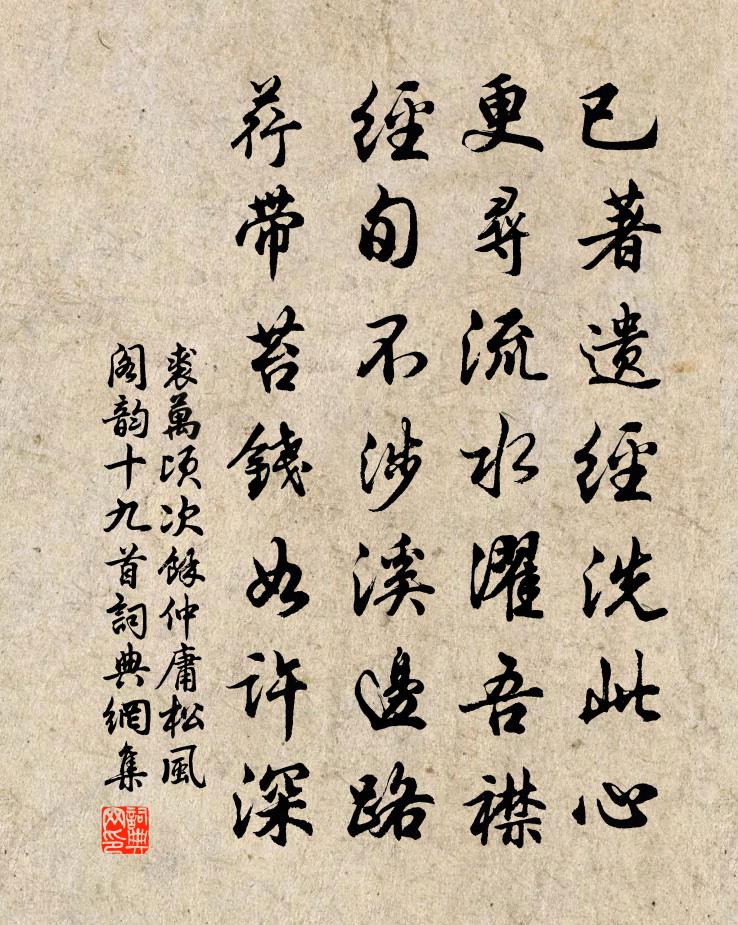 已著遺經洗此心
更尋流水濯吾襟
經旬不涉溪邊路
荇帶苔錢如許深
裘萬頃次餘仲庸松風
閣韵十九首詞典網集
詞典網印